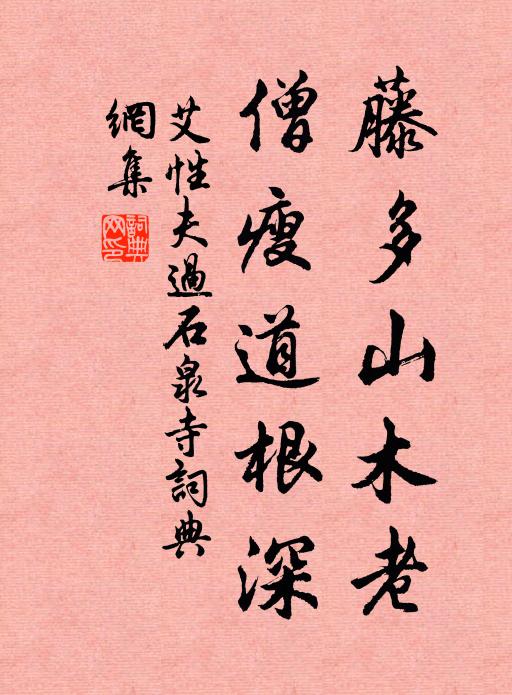 藤多山木老
僧瘦道根深
艾性夫過石泉寺詞典
網集
詞典網印